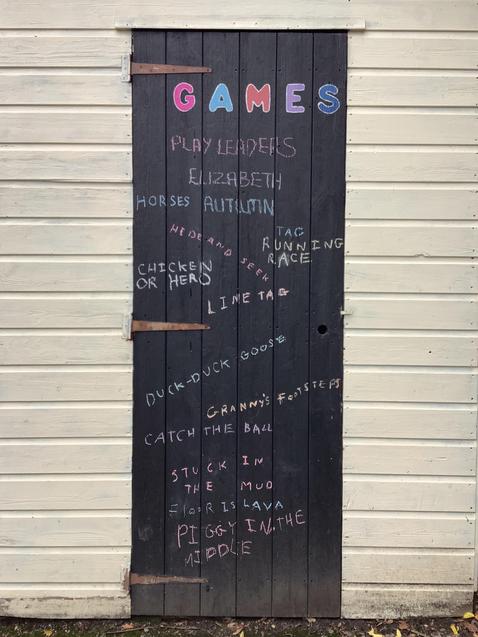 GAMES
PLAY LEADERS
ELIZABETH
HORSES AUTUMN
HIDE AND SEEK
TAG
RUNNING
RACE
CHICKEN
OR HERO
LINE TAG
DUCK-DUCK GOOSE
GRANNY'S FOOTSTEPS
CATCH THE BALL
STUCK IN
THE MUD
FLOOR IS LAVA
PIGGY IN THE
MIDDLE